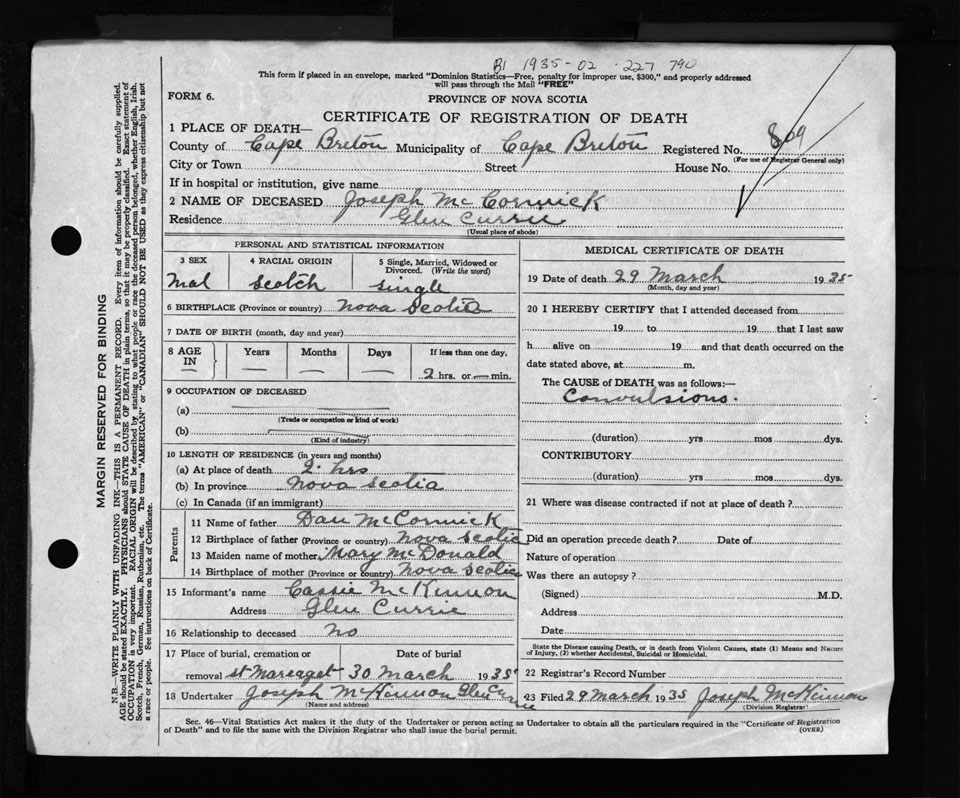 B1 1935-02-227 790
This form if placed in an envelope, marked "Dominion Statistics—Free, penalty for improper use, $300," and properly addressed
will pass through the Mail "FREE"
FORM 6.
PROVINCE OF NOVA SCOTIA
CERTIFICATE OF REGISTRATION OF DEATH
1 PLACE OF DEATH—
County of Cape Breton Municipality of Cape Breton Registered No. 809
(For use of Registrar General only)
City or Town Street House No.
If in hospital or institution, give name
2 NAME OF DECEASED Joseph McCormick
Residence Glen Currie
(Usual place of abode)
PERSONAL AND STATISTICAL INFORMATION
3 SEX 4 RACIAL ORIGIN 5 Single, Married, Widowed or
Divorced. (Write the word)
Mal Scotch Single
6 BIRTHPLACE (Province or country) Nova Scotia
7 DATE OF BIRTH (month, day and year)
8 AGE IN Years Months Days If less than one day,
— — — 2 hrs. or — min.
9 OCCUPATION OF DECEASED
(a)
(Trade or occupation or kind of work)
(b)
(Kind of industry)
10 LENGTH OF RESIDENCE (in years and months)
(a) At place of death 2. hrs
(b) In province Nova Scotia
(c) In Canada (if an immigrant)
Parents
11 Name of father Dan McCormick
12 Birthplace of father (Province or country) Nova Scotia
13 Maiden name of mother Mary McDonald
14 Birthplace of mother (Province or country) Nova Scotia
15 Informant's name Cassie McKinnon
Address Glen Currie
16 Relationship to deceased no
17 Place of burial, cremation or Date of burial
removal St Mareaget 30 March 1935
18 Undertaker Joseph McKinnon Glen Currie
(Name and address)
MEDICAL CERTIFICATE OF DEATH
19 Date of death 29 March 1935
(Month, day and year)
20 I HEREBY CERTIFY that I attended deceased from
19 to 19 that I last saw
h alive on 19 and that death occurred on the
date stated above, at m.
The CAUSE of DEATH was as follows:—
Convulsions.
(duration) yrs mos dys.
CONTRIBUTORY
(duration) yrs mos dys.
21 Where was disease contracted if not at place of death?
Did an operation precede death? Date of
Nature of operation
Was there an autopsy?
(Signed) M.D.
Address
Date
State the Disease causing Death, or in death from Violent Causes, state (1) Means and Nature
of Injury, (2) whether Accidental, Suicidal or Homicidal.
22 Registrar's Record Number
23 Filed 29 March 1935 Joseph McKinnon
(Division Registrar)
Sec. 46—Vital Statistics Act makes it the duty of the Undertaker or person acting as Undertaker to obtain all the particulars required in the "Certificate of Registration
of Death" and to file the same with the Division Registrar who shall issue the burial permit.
(OVER)
MARGIN RESERVED FOR BINDING
N.B.—WRITE PLAINLY WITH UNFADING INK—THIS IS A PERMANENT RECORD. Every item of information should be carefully supplied.
AGE should be stated EXACTLY. PHYSICIANS should STATE CAUSE OF DEATH in plain terms, so that it may be properly classified. Exact statement of
OCCUPATION is very important. RACIAL ORIGIN will be described by stating to what people or race the deceased person belonged, whether English, Irish,
Scotch, French, German, Russian, Ruthenian, etc. The terms "AMERICAN" or "CANADIAN" SHOULD NOT BE USED as they express citizenship but not
a race or people. See instructions on back of Certificate.